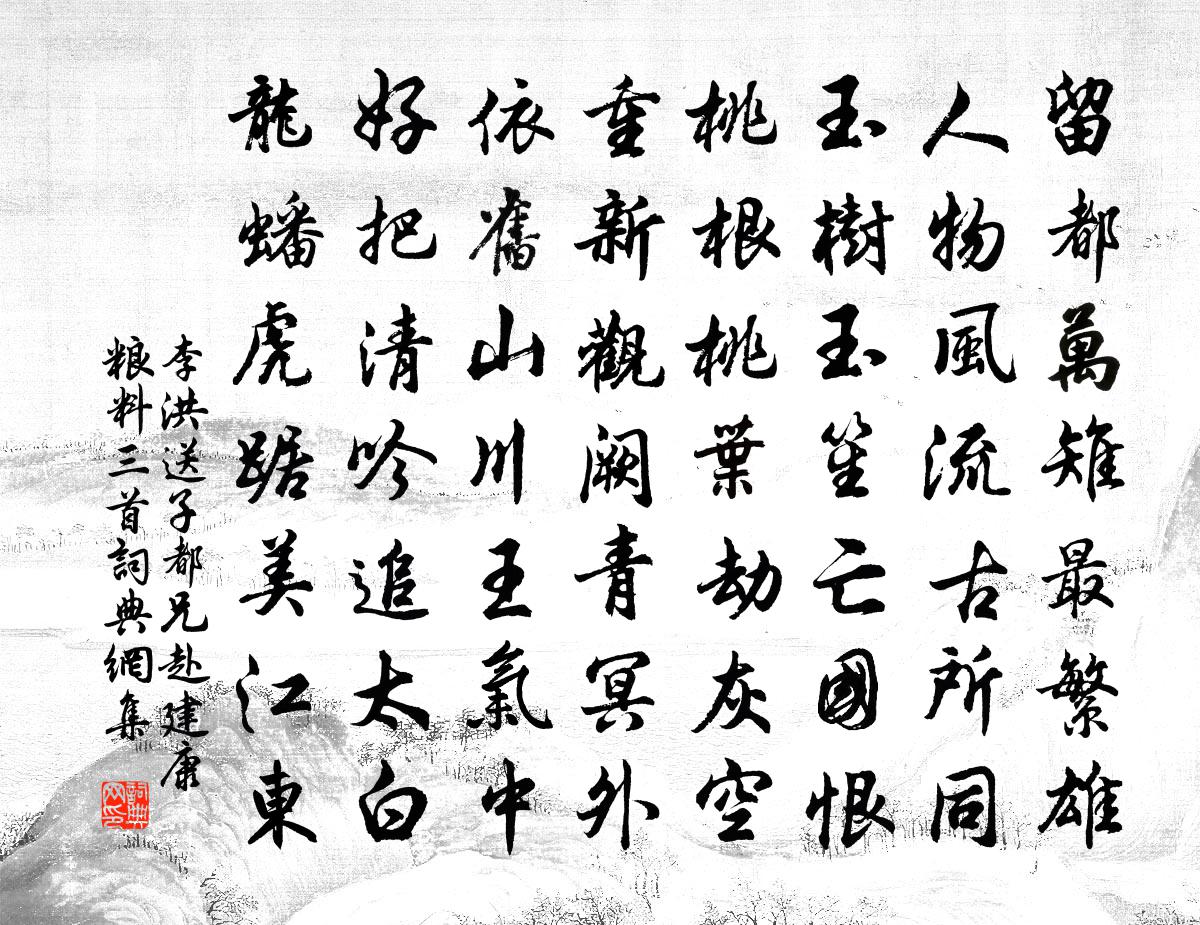 留都萬雉最繁雄
人物風流古所同
玉樹玉笙亡國恨
桃根桃葉劫灰空
重新觀闕青冥外
依舊山川王氣中
好把清吟追太白
龍蟠虎踞美江東
李洪送子都兄赴建康
粮料三首詞典網集
詞典网印